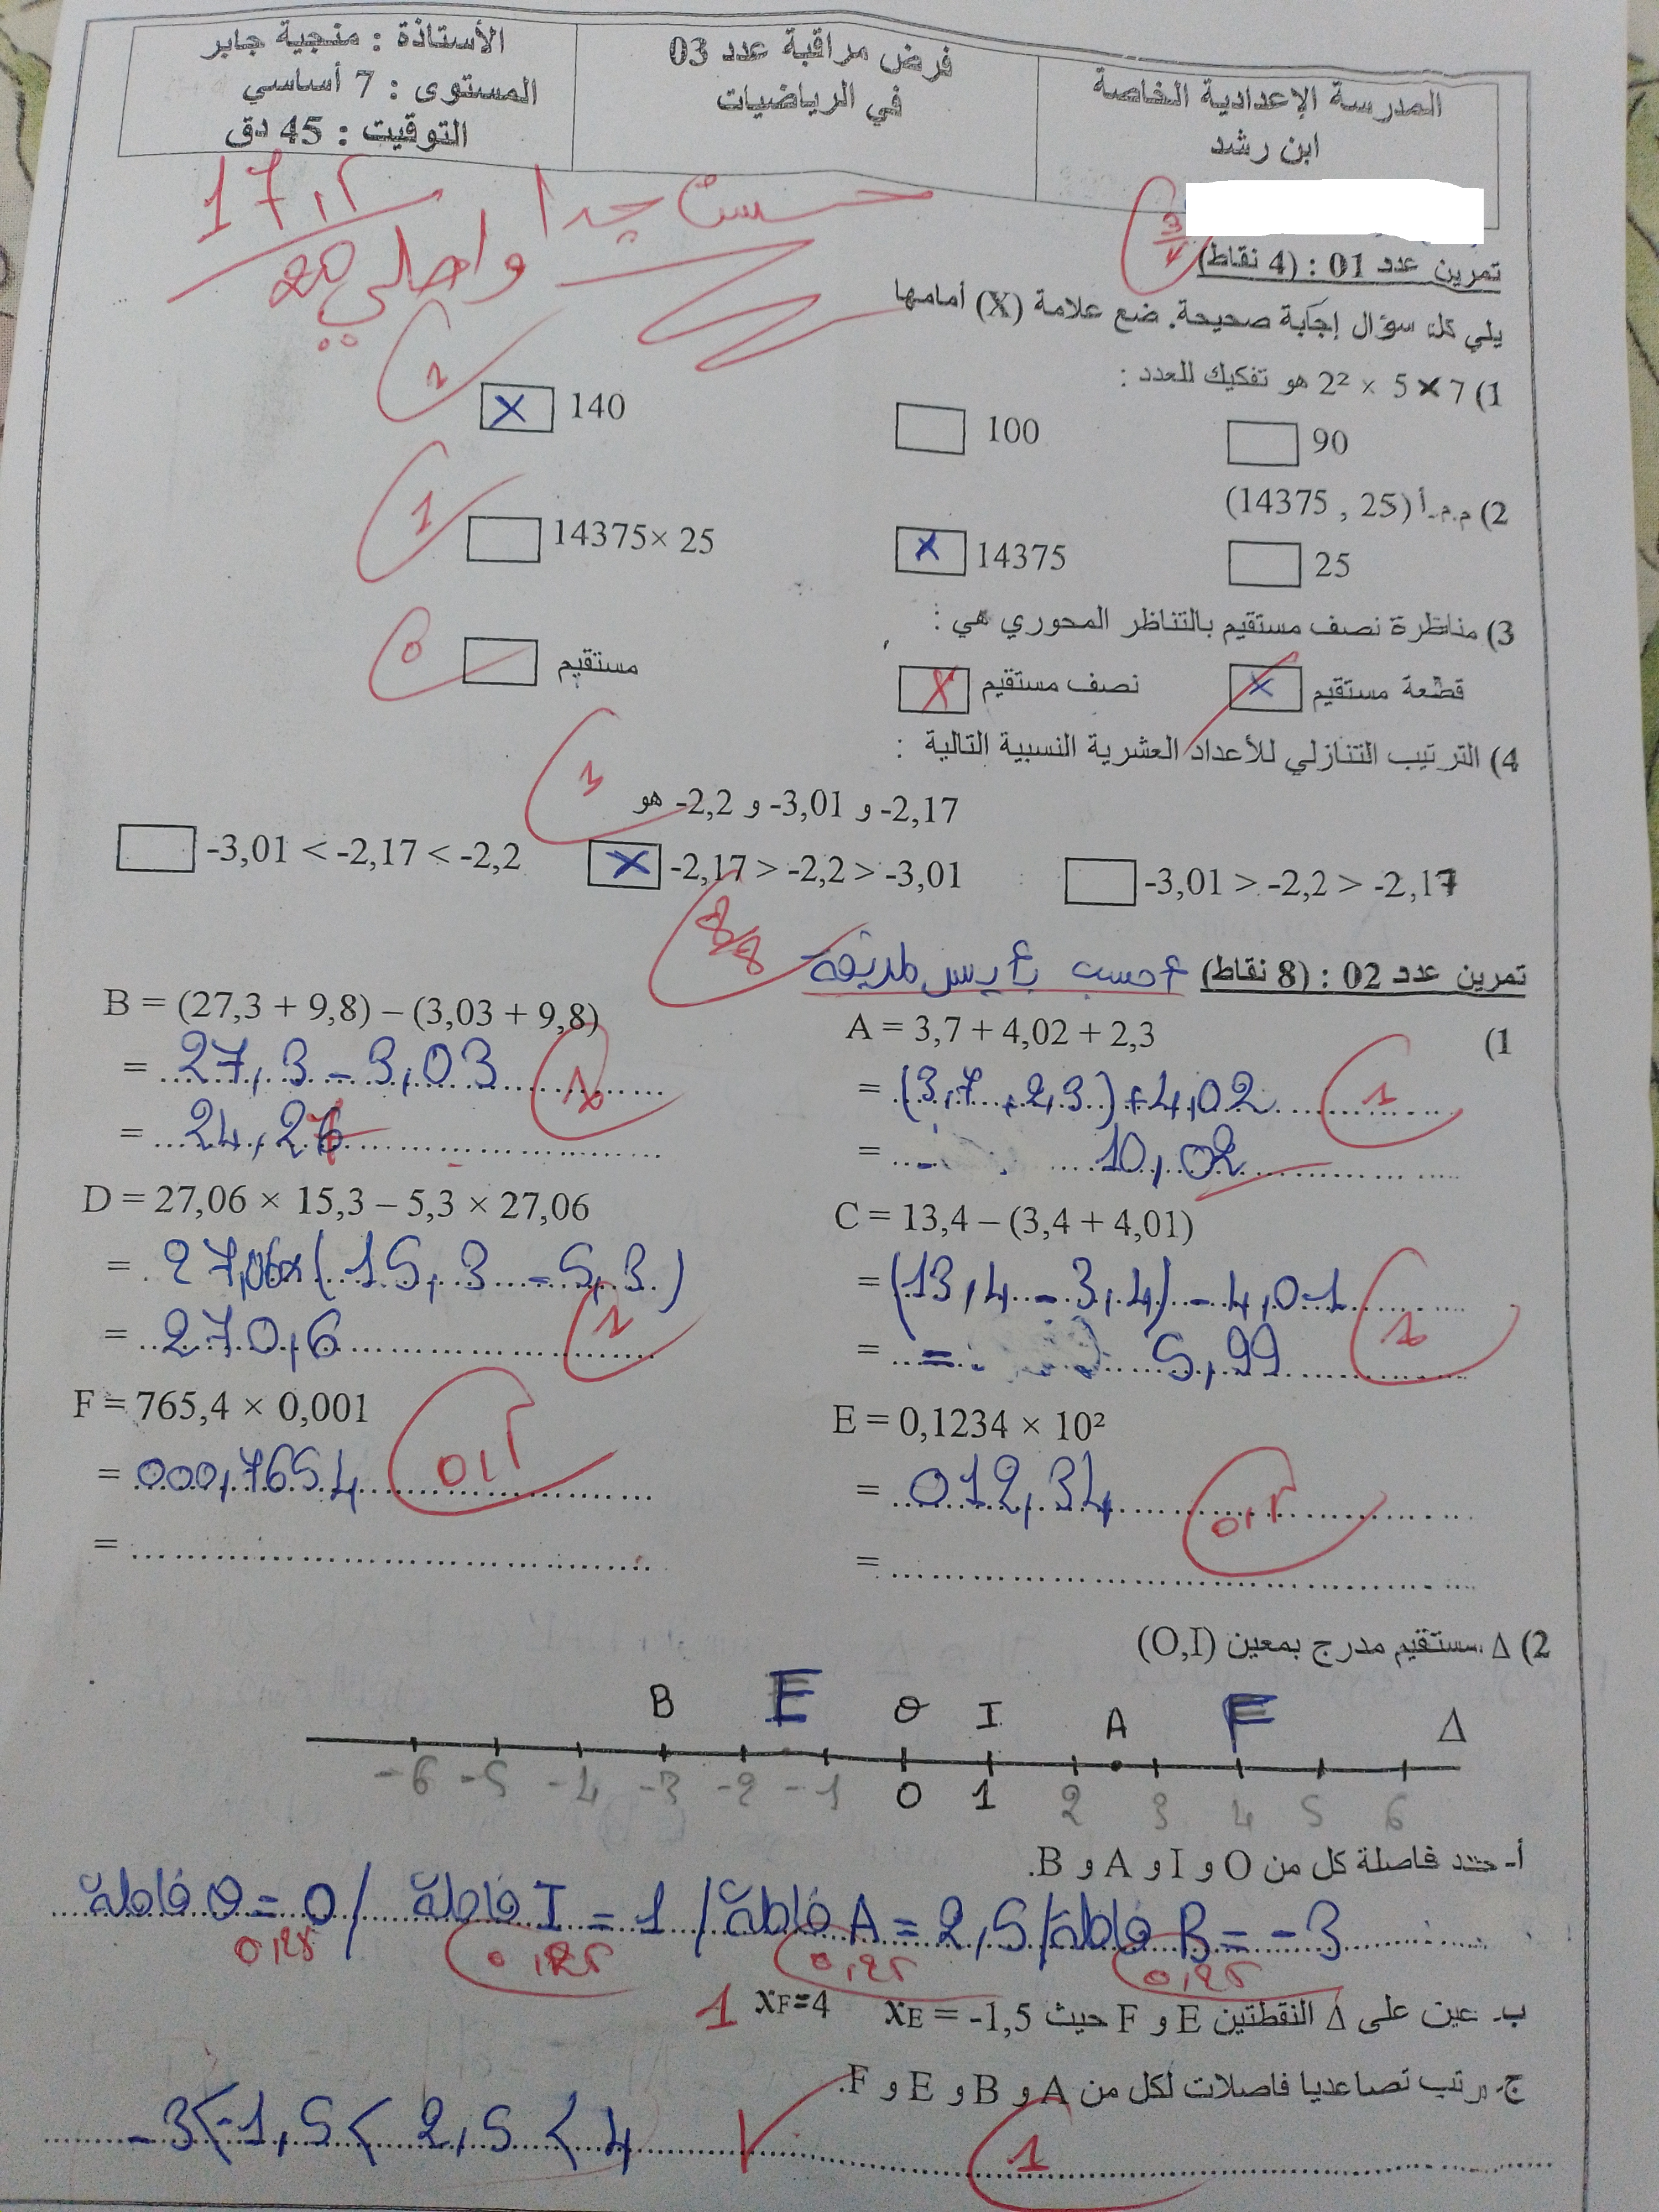 المدرسة الإعدادية الخاصة
ابن رشد
فرض مراقبة عدد 03
في الرياضيات
الأستاذة : منجية جابر
المستوى : 7 أساسي
التوقيت : 45 دق
17,5
20
حسن جدا
واصلي
3/4
تمرين عدد 01 : (4 نقاط)
يلي كل سؤال إجابة صحيحة. ضع علامة (X) أمامها
1) 2² × 5 × 7 هو تفكيك للعدد :
90
100
X 140
1
2) م.م.أ (25 , 14375)
25
X 14375
14375× 25
1
3) مناظرة نصف مستقيم بالتناظر المحوري هي :
X قطعة مستقيم
X نصف مستقيم
مستقيم
0
4) الترتيب التنازلي للأعداد العشرية النسبية التالية :
-2,17 و -3,01 و -2,2 هو
1
-3,01 > -2,2 > -2,17
X -2,17 > -2,2 > -3,01
-3,01 < -2,17 < -2,2
تمرين عدد 02 : (8 نقاط) احسب بأيسر طريقة
8/8
1)
A = 3,7 + 4,02 + 2,3
= (3,7 + 2,3) + 4,02
= 10,02
1
B = (27,3 + 9,8) – (3,03 + 9,8)
= 27,3 - 3,03
= 24,27
1
C = 13,4 – (3,4 + 4,01)
= (13,4 - 3,4) - 4,01
= = 5,99
1
D = 27,06 × 15,3 – 5,3 × 27,06
= 27,06x(15,3 - 5,3)
= 270,6
1
E = 0,1234 × 10²
= 012,34
0,5
=
F = 765,4 × 0,001
= 000,7654
0,5
=
2) Δ مستقيم مدرج بمعين (O,I)
B E O I A F Δ
-6 -5 -4 -3 -2 -1 0 1 2 3 4 5 6
أ- حدد فاصلة كل من O و I و A و B.
فاصلة O = 0 / فاصلة I = 1 / فاصلة A = 2,5 / فاصلة B = -3
0,25 0,25 0,25 0,25
ب- عين على Δ النقطتين E و F حيث xE = -1,5 xF=4
1
ج- رتب تصاعديا فاصلات لكل من A و B و E و F.
-3<-1,5< 2,5 < 4
1